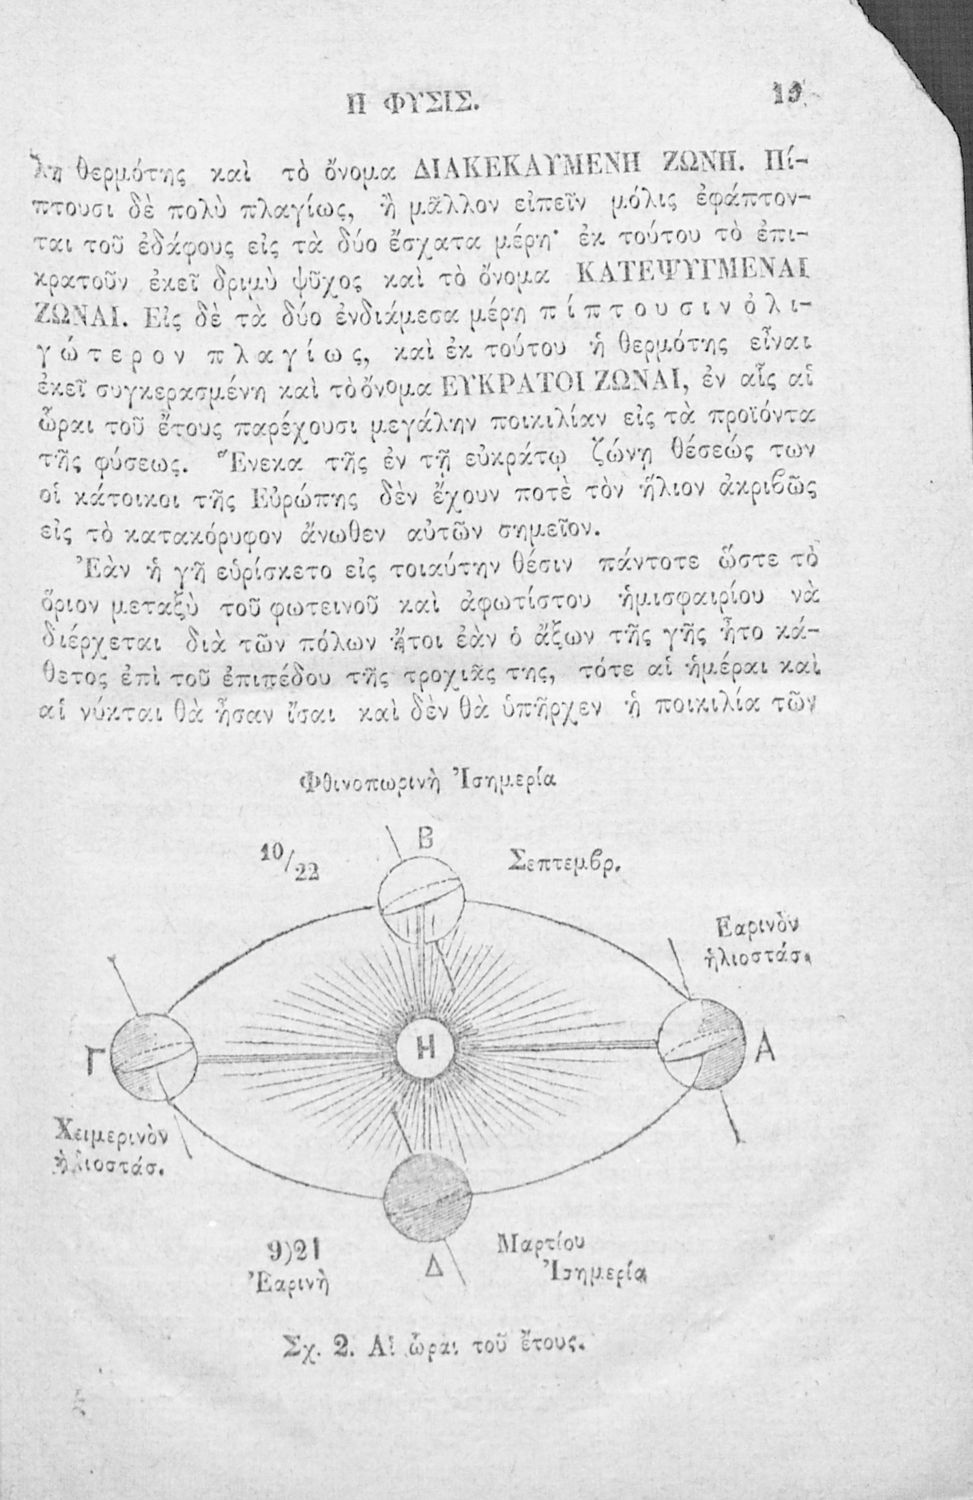 Η ΦΥΣΙΣ. 19
λη θερμότης καὶ τὸ ὄνομα ΔΙΑΚΕΚΑΥΜΕΝΗ ΖΩΝΗ. Πί-
πτουσι δὲ πολὺ πλαγίως, ἢ μᾶλλον εἰπεῖν μόλις ἐφάπτον-
ται τοῦ ἐδάφους εἰς τὰ δύο ἔσχατα μέρη· ἐκ τούτου τὸ ἐπι-
κρατοῦν ἐκεῖ δριμὺ ψῦχος καὶ τὸ ὄνομα ΚΑΤΕΨΥΓΜΕΝΑΙ
ΖΩΝΑΙ. Εἰς δὲ τὰ δύο ἐνδιάμεσα μέρη πίπτουσιν ὀλι-
γώτερον πλαγίως, καὶ ἐκ τούτου ἡ θερμότης εἶναι
ἐκεῖ συγκερασμένη καὶ τὸ ὄνομα ΕΥΚΡΑΤΟΙ ΖΩΝΑΙ, ἐν αἷς αἱ
ὧραι τοῦ ἔτους παρέχουσι μεγάλην ποικιλίαν εἰς τὰ προϊόντα
τῆς φύσεως. Ἕνεκα τῆς ἐν τῇ εὐκράτῳ ζώνῃ θέσεώς των
οἱ κάτοικοι τῆς Εὐρώπης δὲν ἔχουν ποτὲ τὸν ἥλιον ἀκριβῶς
εἰς τὸ κατακόρυφον ἄνωθεν αὐτῶν σημεῖον.
Ἐὰν ἡ γῆ εὑρίσκετο εἰς τοιαύτην θέσιν πάντοτε ὥστε τὸ
ὅριον μεταξὺ τοῦ φωτεινοῦ καὶ ἀφωτίστου ἡμισφαιρίου νὰ
διέρχεται διὰ τῶν πόλων ἤτοι ἐὰν ὁ ἄξων τῆς γῆς ἦτο κά-
θετος ἐπὶ τοῦ ἐπιπέδου τῆς τροχιᾶς της, τότε αἱ ἡμέραι καὶ
αἱ νύκται θὰ ἦσαν ἴσαι καὶ δὲν θὰ ὑπῆρχεν ἡ ποικιλία τῶν
Φθινοπωρινὴ Ἰσημερία
10/22 Β Σεπτεμβρ.
Εαρινὸν
ἡλιοστάσ.
Γ Η Α
Χειμερινὸν
ἡλιοστάσ.
9)21 Δ Μαρτίου
Ἐαρινὴ Ἰσημερία
Σχ. 2. Αἱ ὧραι τοῦ ἔτους.